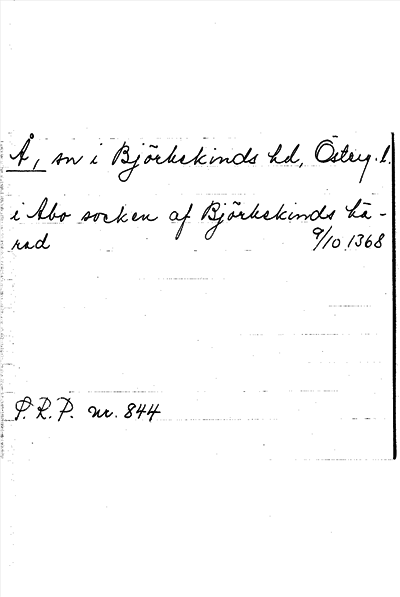 Å, sn i Björkekinds hd, Österg. l.
i Abo socken af Björkekinds hä-
rad 9/10 1368
S.R.P. nr. 844